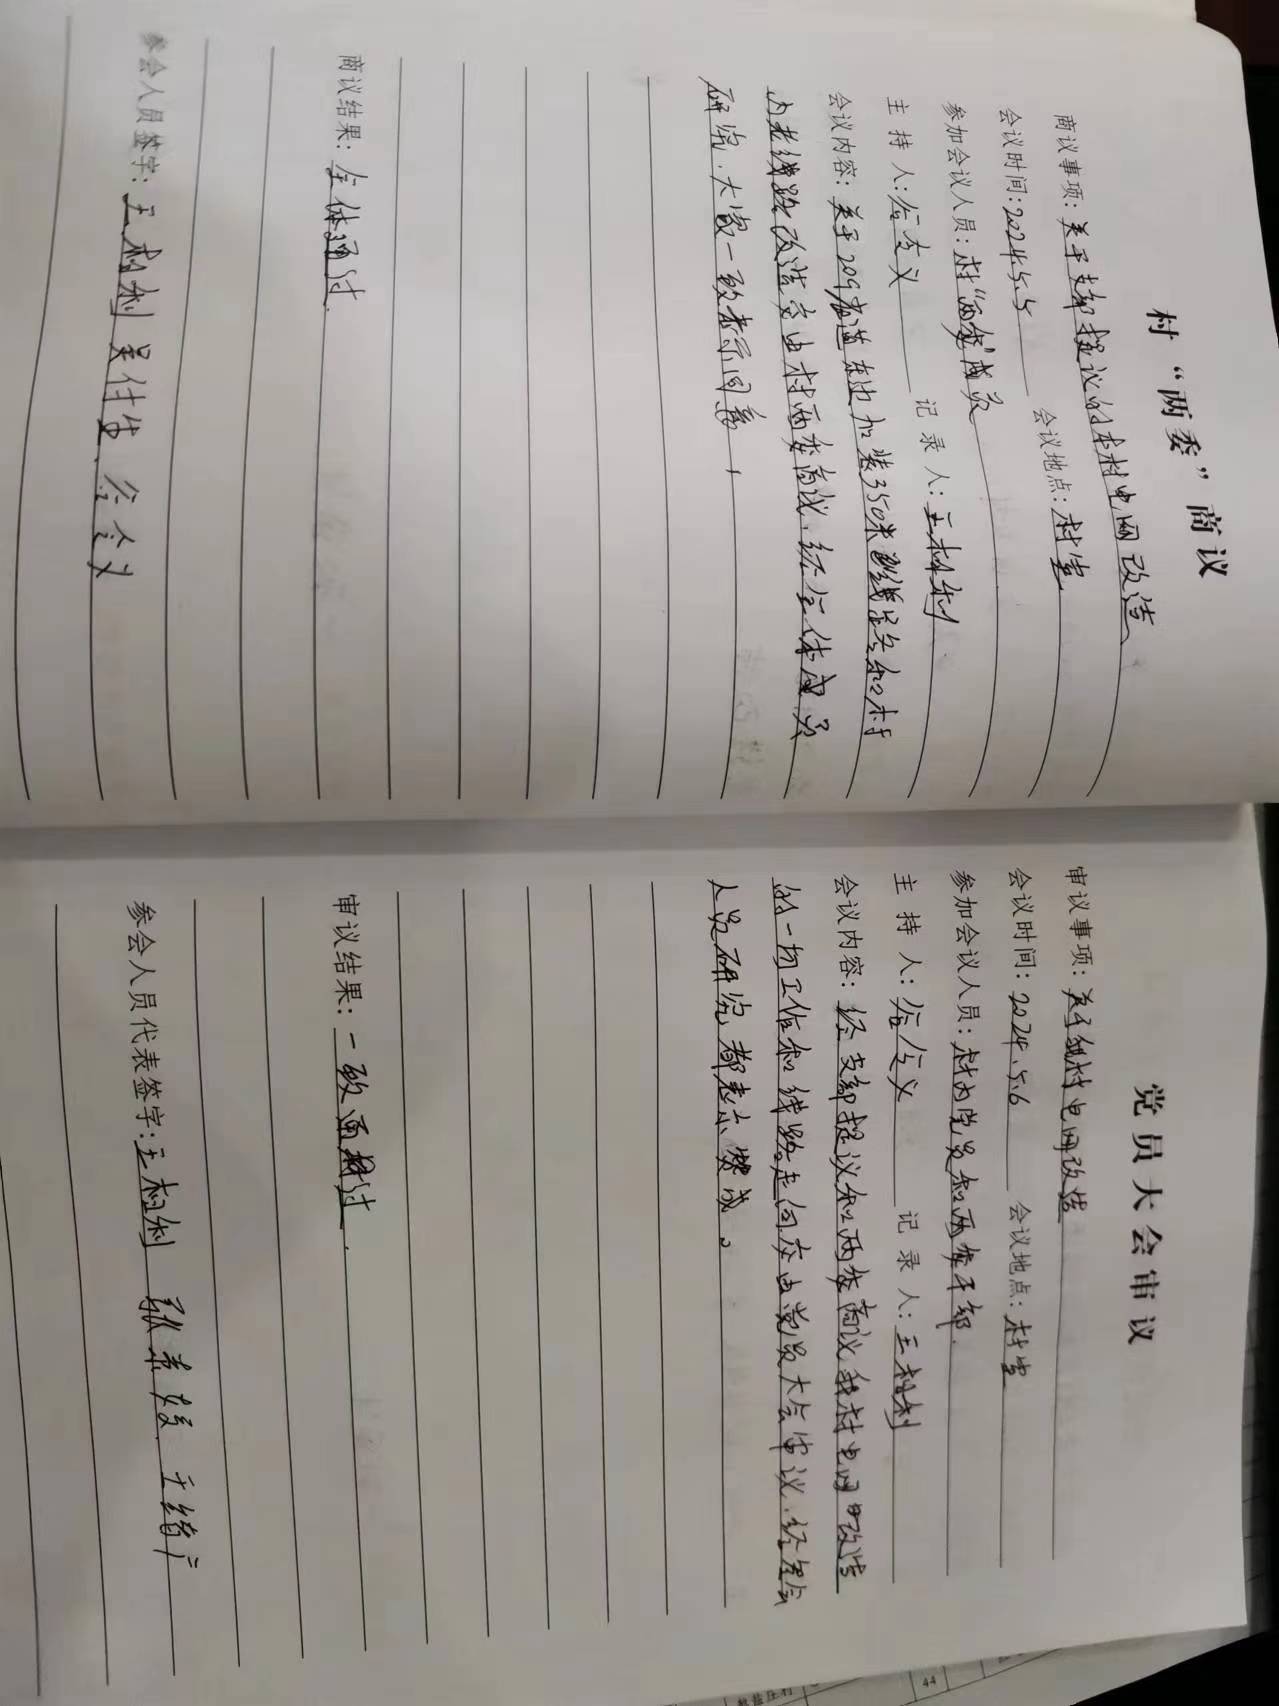 村“两委”商议
商议事项：关于支部提议的本村电网改造
会议时间：2024.5.5 会议地点：村室
参加会议人员：村“两委”成员
主持人：谷令义 记录人：王相利
会议内容：关于209省道东边加装350米线路和村
内老线路改造交由村两委商议，经全体成员
研究，大家一致表示同意，
商议结果：全体通过.
参会人员签字：王相利 吴付生 谷令义
党员大会审议
审议事项：关于我村电网改造
会议时间：2024.5.6 会议地点：村室
参加会议人员：村内党员和两委干部.
主持人：谷令义 记录人：王相利
会议内容：经支部提议和两委商议我村电网改造
的一切工作和线路走向交由党员大会审议.经参会
人员研究都表示赞成。
审议结果：一致通过.
参会人员代表签字：王相利 张 王绪广
44